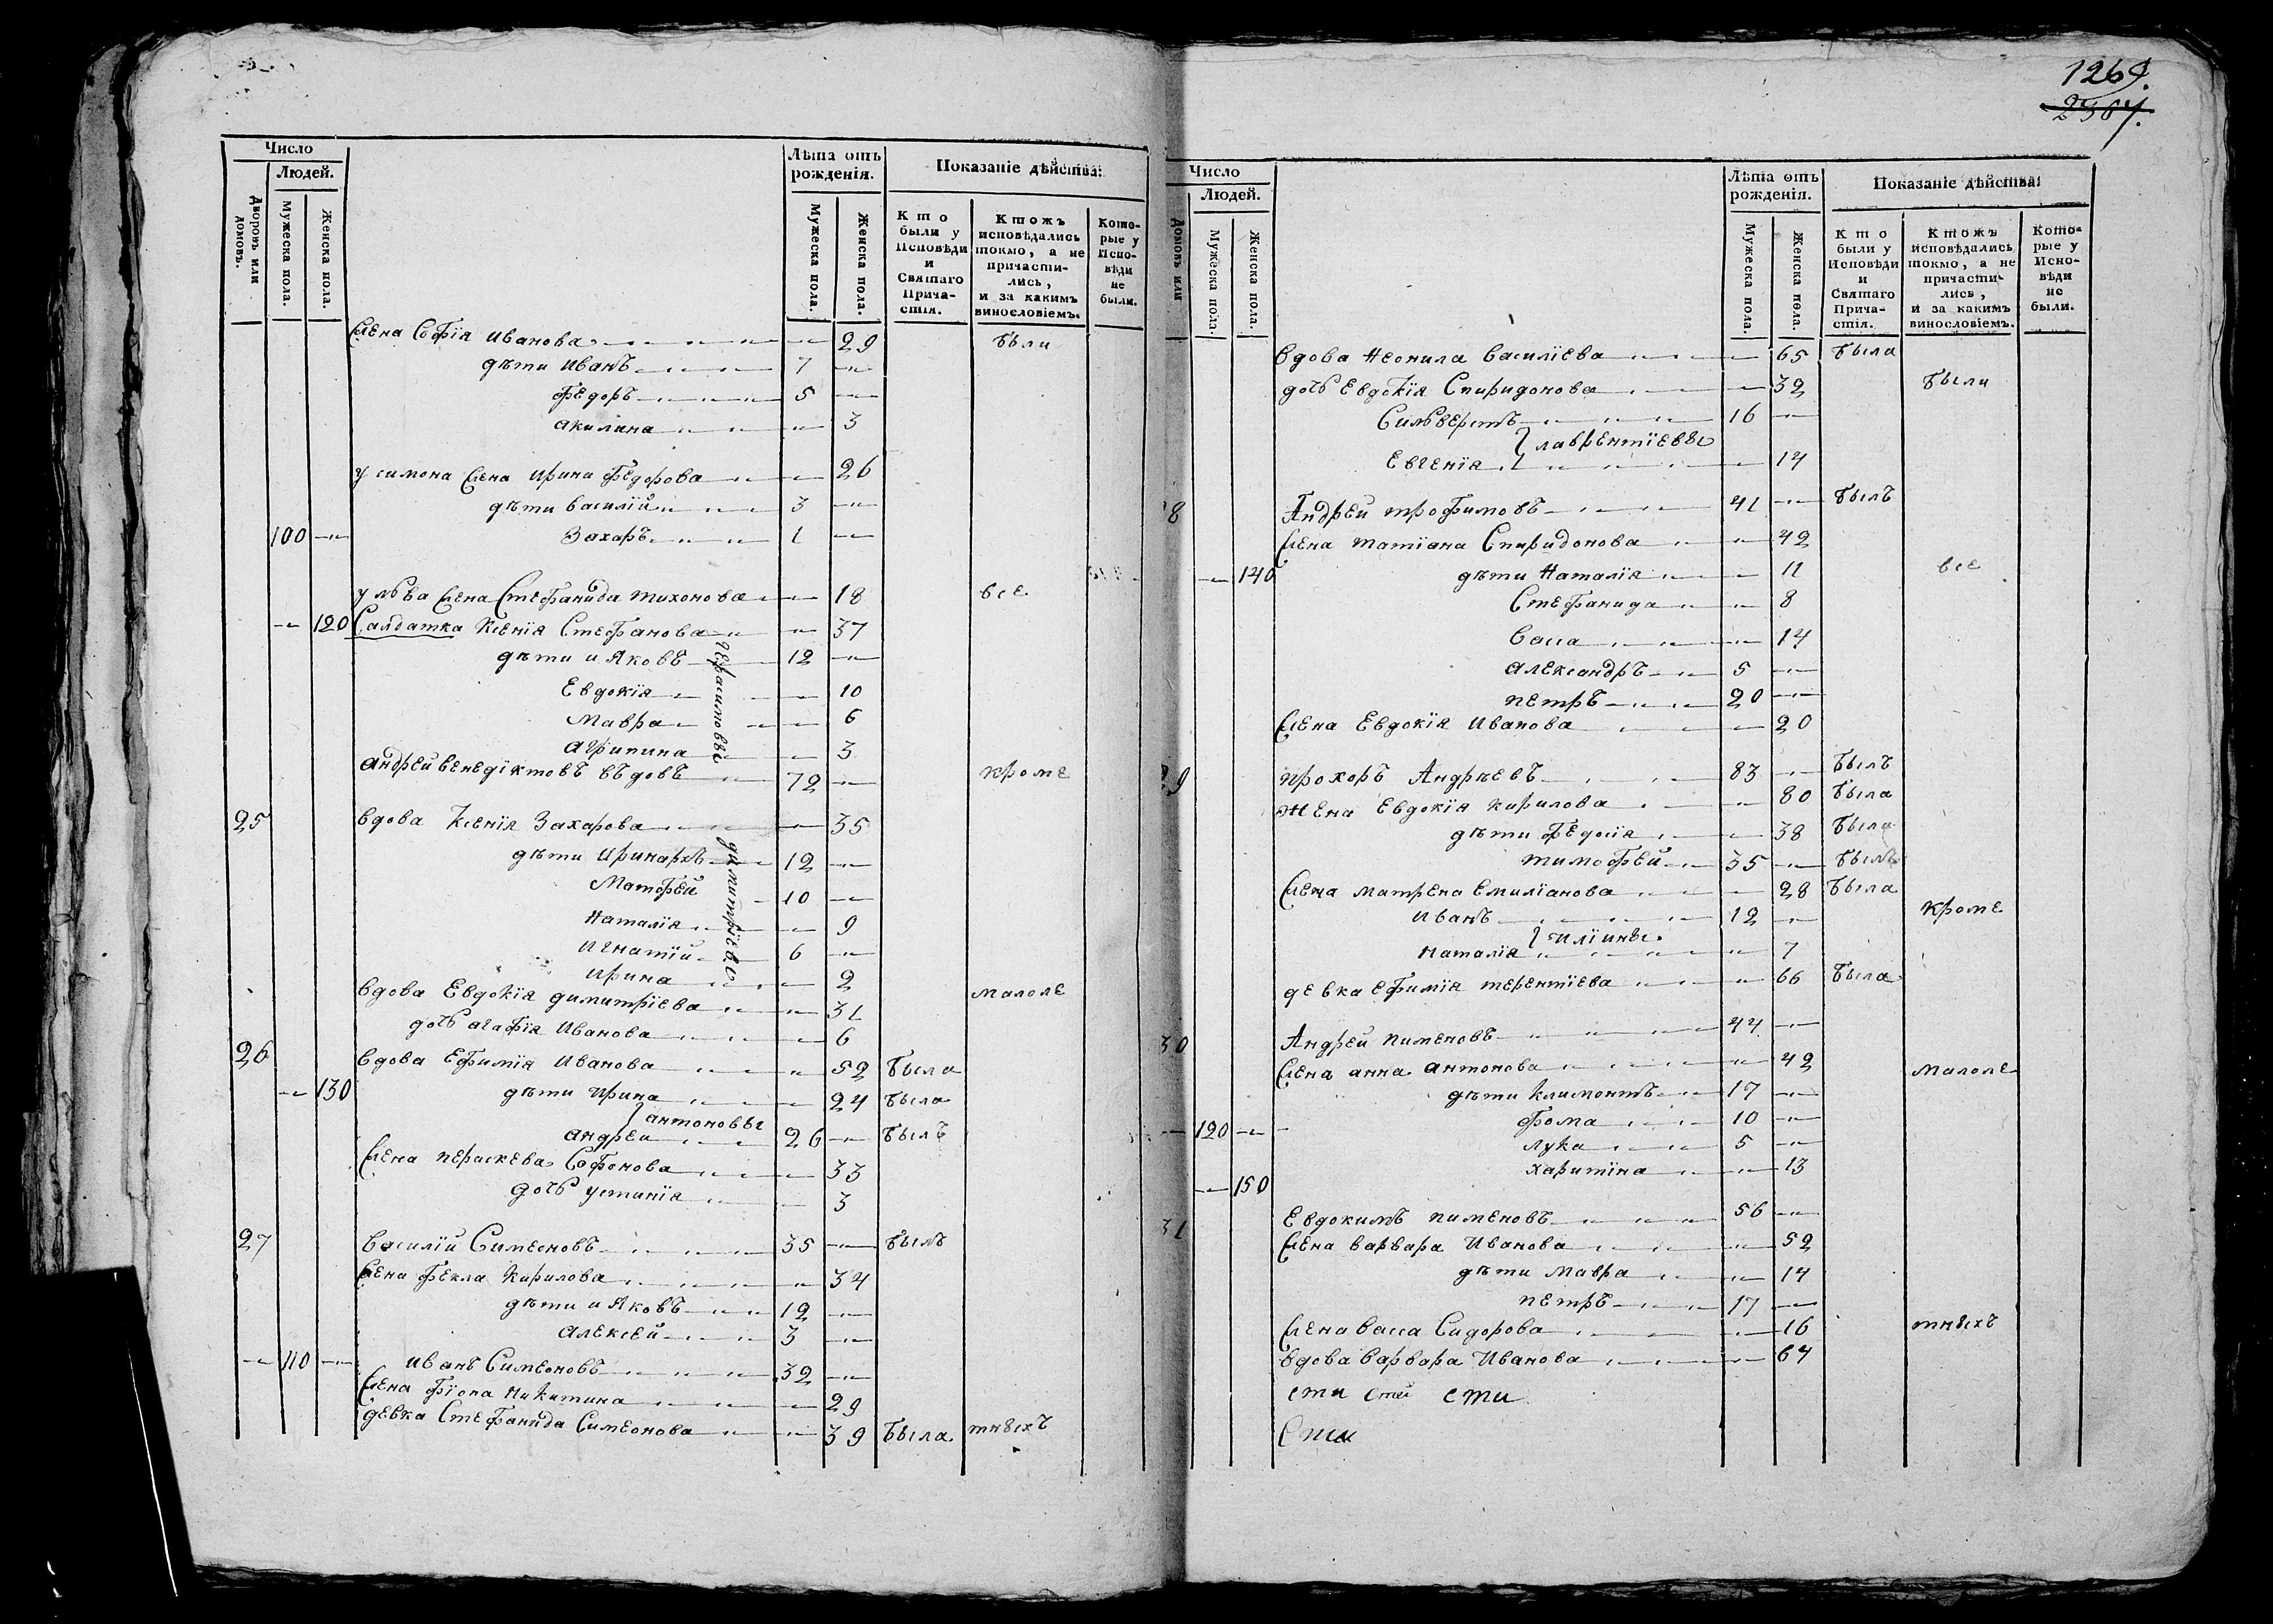 1269.
2367.
Число
Людей.
Дворовъ или домовъ.
Мужеска пола.
Женска пола.
Лѣта отъ рожденія.
Мужеска пола.
Женска пола.
Показаніе дѣйства:
Кто были у Исповѣди и Святаго Причастія.
Ктожъ исповѣдались токмо, а не причастились, и за какимъ винословіемъ.
Которые у Исповѣди не были.
жена Софїя Иванова 29 были
дѣти Иванъ 7
Федоръ 5
Акилина 3
у симона жена Ирина Федорова 26
дѣти Василїй 3
100 Захаръ 1
у льва жена Стефанида Тихонова 18 все
120 Салдатка Ксенїя Стефанова 37
дѣти Иаковъ 12
Евдокїя 10
Мавра 6
Агрипина 3
Герасимовы
Андрей Венедїктовъ вдовъ 72 кроме
25 вдова Ксенїя Захарова 35
дѣти Иринархъ 12
Матфей 10
Наталїя 9
Игнатїй 6
Ирина 2
димитрїевы
вдова Евдокїя димитрїева 31 малоле
дочь Агафїя Иванова 6
26 вдова Ефимїя Иванова 52 была
130 дѣти Ирина 24 была
антоновы
андрей 26 былъ
жена Пераскева Софонова 33
дочь устинїя 3
27 Василїй Симеоновъ 35 былъ
жена Фекла Кирилова 34
дѣти Иаковъ 12
Алексей 3
110 Иванъ Симеоновъ 32
жена Фїона Никитина 29
девка Стефанида Симеонова 39 была тныхъ
Число
Людей.
Домовъ или
Мужеска пола.
Женска пола.
Лѣта отъ рожденія.
Мужеска пола.
Женска пола.
Показаніе дѣйства:
Кто были у Исповѣди и Святаго Причастія.
Ктожъ исповѣдались токмо, а не причастились, и за какимъ винословіемъ.
Которые у Исповѣди не были.
вдова Неонила Василїева 65 была
дочь Евдокїя Спиридонова 32 были
Сильверстъ 16
лаврентїевы
Евгенїя 14
8 Андрей трофимовъ 41 былъ
жена Татїана Спиридонова 42
140 дѣти Наталїя 11 все
Стефанида 8
Васса 14
Александръ 5
Петръ 20
жена Евдокїя Иванова 20
9 Прохоръ Андрѣевъ 83 былъ
жена Евдокїя Кирилова 80 была
дѣти Федосїя 38 была
тимофей 35 былъ
жена матрена Емилїанова 28 была
Иванъ 12 кроме
илїины
наталїя 7
девка Ефимїя терентїева 66 была
30 Андрей Пименовъ 44
жена анна антонова 42 малоле
дѣти Климонтъ 17
120 Фома 10
лука 5
харитїна 13
150
31 Евдокимъ пименовъ 56
жена варвара Иванова 52
дѣти Мавра 14
петръ 17
жена Васса Сидорова 16 тныхъ
вдова Варвара Иванова 64